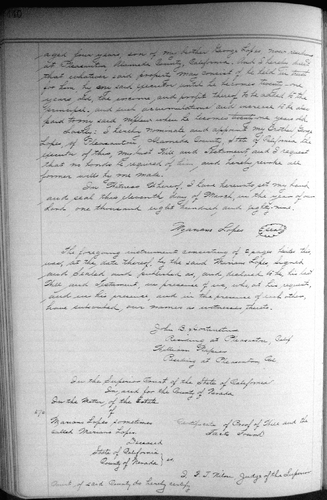 aged four years, son of my brother George Lopes, now residing
at Pleasanton Alameda County, California. And I hereby direct
that whatever said property may consist of be held in trust
for him by my said executor until he becomes twenty one
years old, the income and profit thereof to be added to the
principal and such accumulations and increase to be also
paid to my said nephew when he becomes twenty one years old.
Lastly: I hereby nominate and appoint my brother George
Lopes, of Pleasanton, Alameda County, State of California, the
executor of this my last Will and Testament and I request
that no bonds be required of him, and hereby revoke all
former wills by me made.
In Witness Whereof, I have hereunto set my hand
and seal this eleventh day of March, in the year of our
Lord one thousand eight hundred and
Mariano Lopes (Seal)
The foregoing instrument consisting of 2 pages besides this
was, at the date thereof, by the said Mariano Lopes signed
and sealed and published as, and declared to be, his last
Will and Testament, in presence of us, who, at his request,
and in his presence, and in the presence of each other,
have subscribed our names as witnesses thereto.
John B.
Residing at Pleasanton, Calif
William
Residing at Pleasanton Cal.
In the Superior Court of the State of California
In and for the County of Nevada
In the Matter of the Estate
of
Mariano Lopes sometimes
called Mariano Lopes
Deceased
Certificate of Proof of Will and the
Facts found
State of California
County of Nevada ss
I, F. T. Nilon, Judge of the Superior
Court of said County do hereby certify